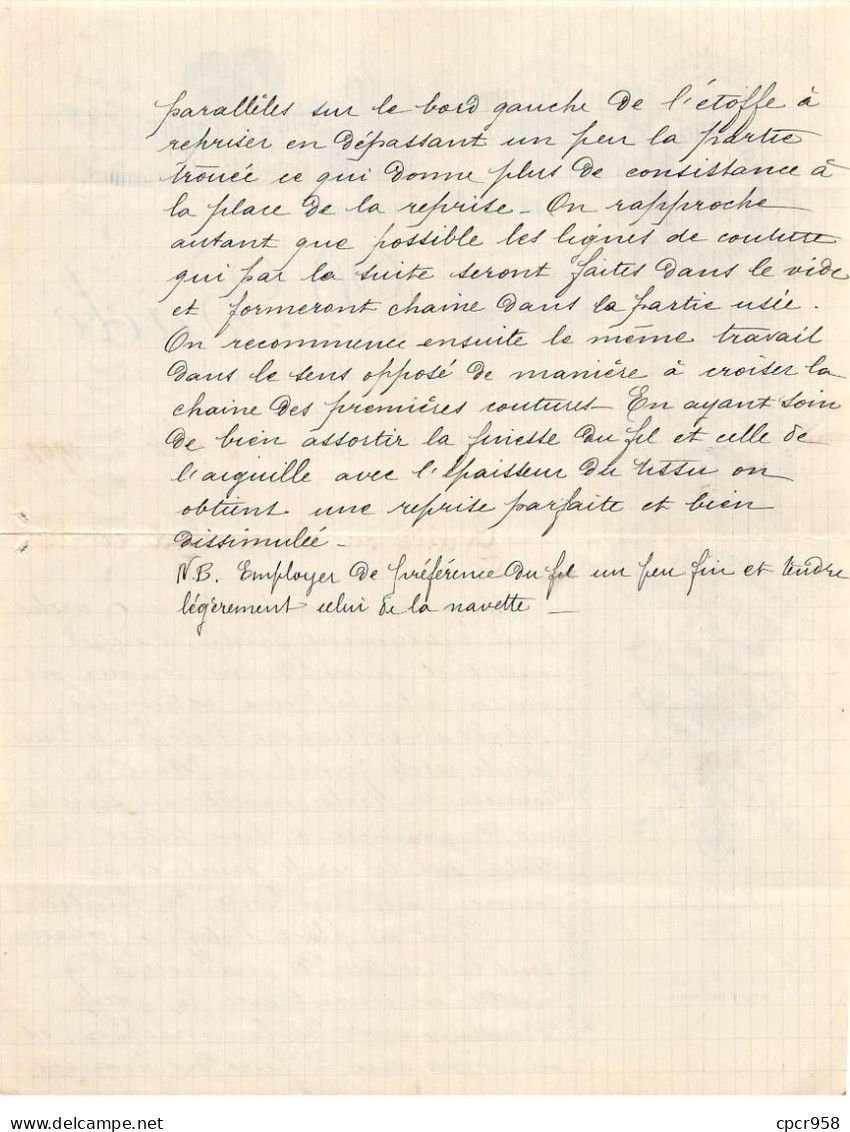 parallèles sur le bord gauche de l'étoffe à
repriser en dépassant un peu la partie
trouée ce qui donne plus de consistance à
la place de la reprise - On rapproche
autant que possible les lignes de couture
qui par la suite seront faites dans le vide
et formeront chaine dans la partie usée.
On recommence ensuite le même travail
dans le sens opposé de manière à croiser la
chaine des premières coutures - En ayant soin
de bien assortir la finesse du fil et celle de
l'aiguille avec l'épaisseur du tissu on
obtient une reprise parfaite et bien
dissimulée -
N.B. Employer de préférence du fil un peu fin et tendre
légèrement celui de la navette -
delcampe.net
cpcr958